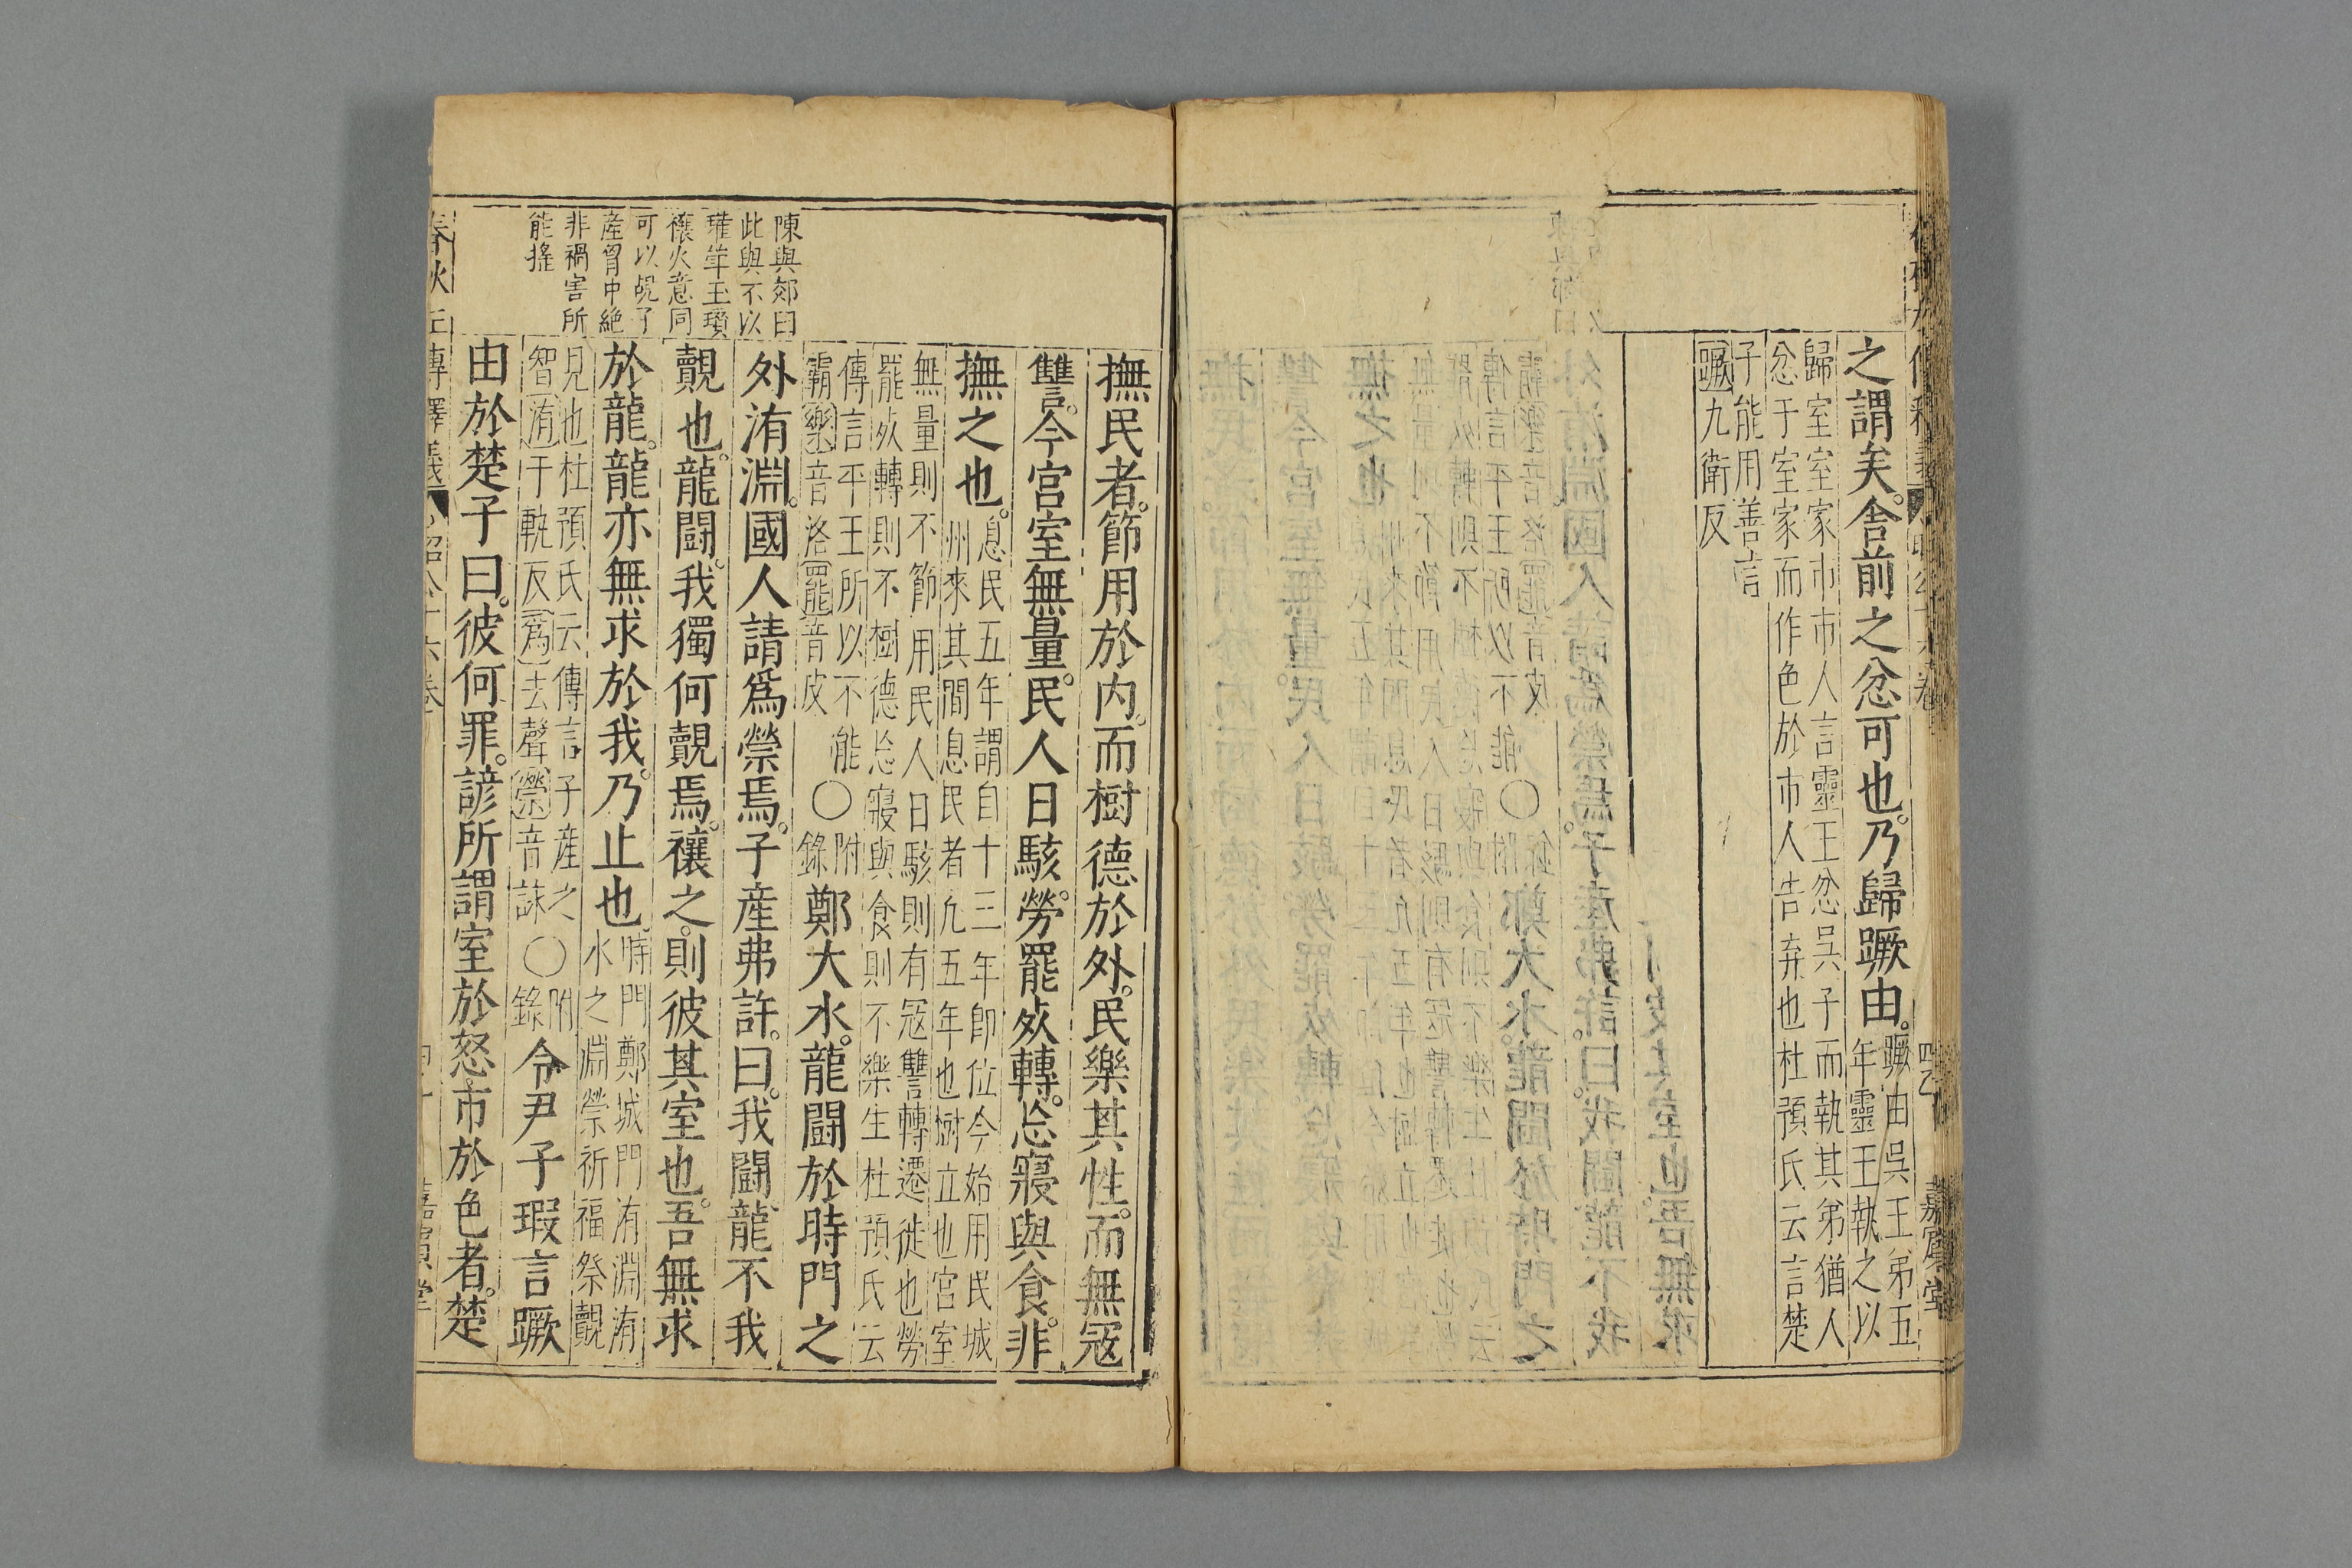 之謂矣。舍前之忿可也。乃歸蹶由。蹶由吳王弟五
年靈王執之以
歸室室家市市人言靈王忿吳子而執其弟猶人
忿于室家而作色於市人告弃也杜預氏云言楚
子能用善言
蹶九衛反
嘉賓堂
撫民者。節用於内。而樹德於外。民樂其性。而無寇
讐。今宮室無量。民人日駭。勞罷死轉。忘寢與食。非
撫之也。息民五年謂自十三年即位今始用民城
州來其間息民者凢五年也樹立也宮室
無量則不節用民人日駭則有寇讐轉遷徙也勞
罷死轉則不樹德忘寢與食則不樂生杜預氏云
傳言平王所以不能
霸樂音洛罷音皮
〇附錄鄭大水。龍闘於時門之
外洧淵。國人請爲禜焉。子産弗許。曰。我闘。龍不我
覿也。龍闘。我獨何覿焉。禳之。則彼其室也。吾無求
於龍。龍亦無求於我。乃止也。時門鄭城門洧淵洧
水之淵禜祈福祭覿
見也杜預氏云傳言子産之
智洧于軌反爲去聲禜音詠
〇附錄令尹子瑕言蹶
由於楚子曰。彼何罪。諺所謂室於怒市於色者。楚
陳與郊曰
此與不以
瓘斝玉瓚
禳火意同
可以覘子
産胷中絶
非禍害所
能搖